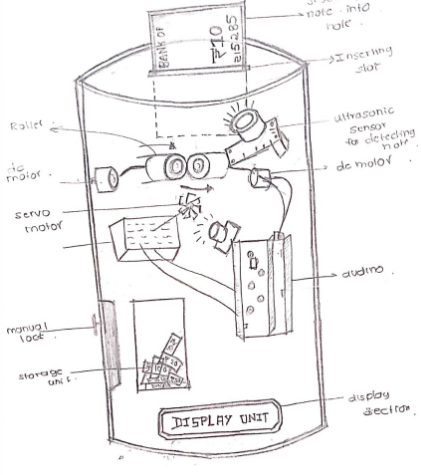 note into
hole.
BANK OF
₹10
215285
Inserting
slot
ultrasonic
sensor
for detecting
note.
Roller
dc
motor.
dc motor.
servo
motor
audino.
manual
lock
storage
unit.
display
DISPLAY UNIT